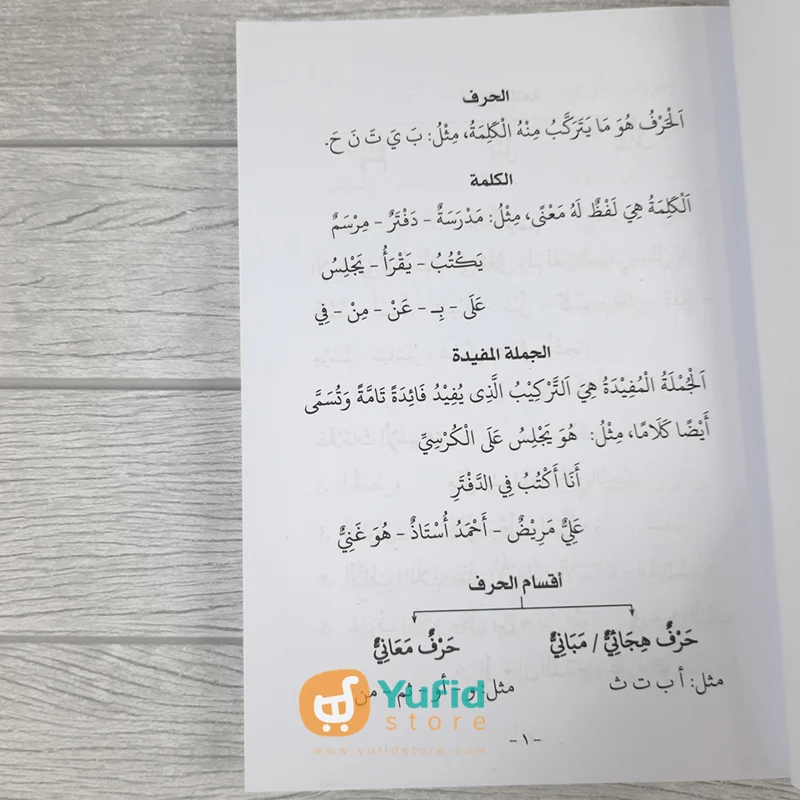 الحرف
اَلْحَرْفُ هُوَ مَا يَتَرَكَّبُ مِنْهُ الْكَلِمَةُ، مِثْلُ: بَ يَ تَ نَ حَ.
الكلمة
اَلْكَلِمَةُ هِيَ لَفْظٌ لَهُ مَعْنًى، مِثْلُ: مَدْرَسَةٌ - دَفْتَرٌ - مِرْسَمٌ
يَكْتُبُ - يَقْرَأُ - يَجْلِسُ
عَلَى - بِـ - عَنْ - مِنْ - فِي
الجملة المفيدة
اَلْجُمْلَةُ الْمُفِيْدَةُ هِيَ اَلتَّرْكِيْبُ الَّذِى يُفِيْدُ فَائِدَةً تَامَّةً وَتُسَمَّى
أَيْضًا كَلَامًا، مِثْلُ: هُوَ يَجْلِسُ عَلَى الْكُرْسِيِّ
أَنَا أَكْتُبُ فِي الدَّفْتَرِ
عَلِيٌّ مَرِيْضٌ - أَحْمَدُ أُسْتَاذٌ - هُوَ غَنِيٌّ
أقسام الحرف
حَرْفٌ هِجَائِيٌّ / مَبَانِيٌّ
حَرْفٌ مَعَانِيٌّ
مثل: أ ب ت ث
مثل: و - أو - ثم - من
Yufid
store
www.yufidstore.com
-١-